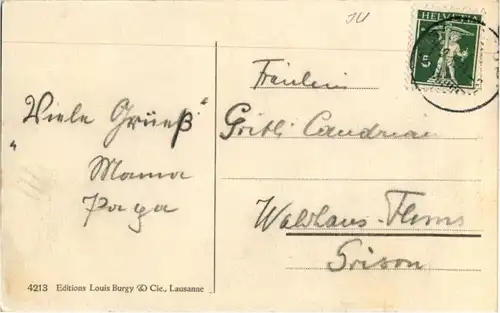 JU
HELVETIA
5
Fräulein
Gritli Candrian
Waldhaus-Flims
Grison
"Viele Grüeß"
Mama
Papa
4213 Editions Louis Burgy & Cie., Lausanne